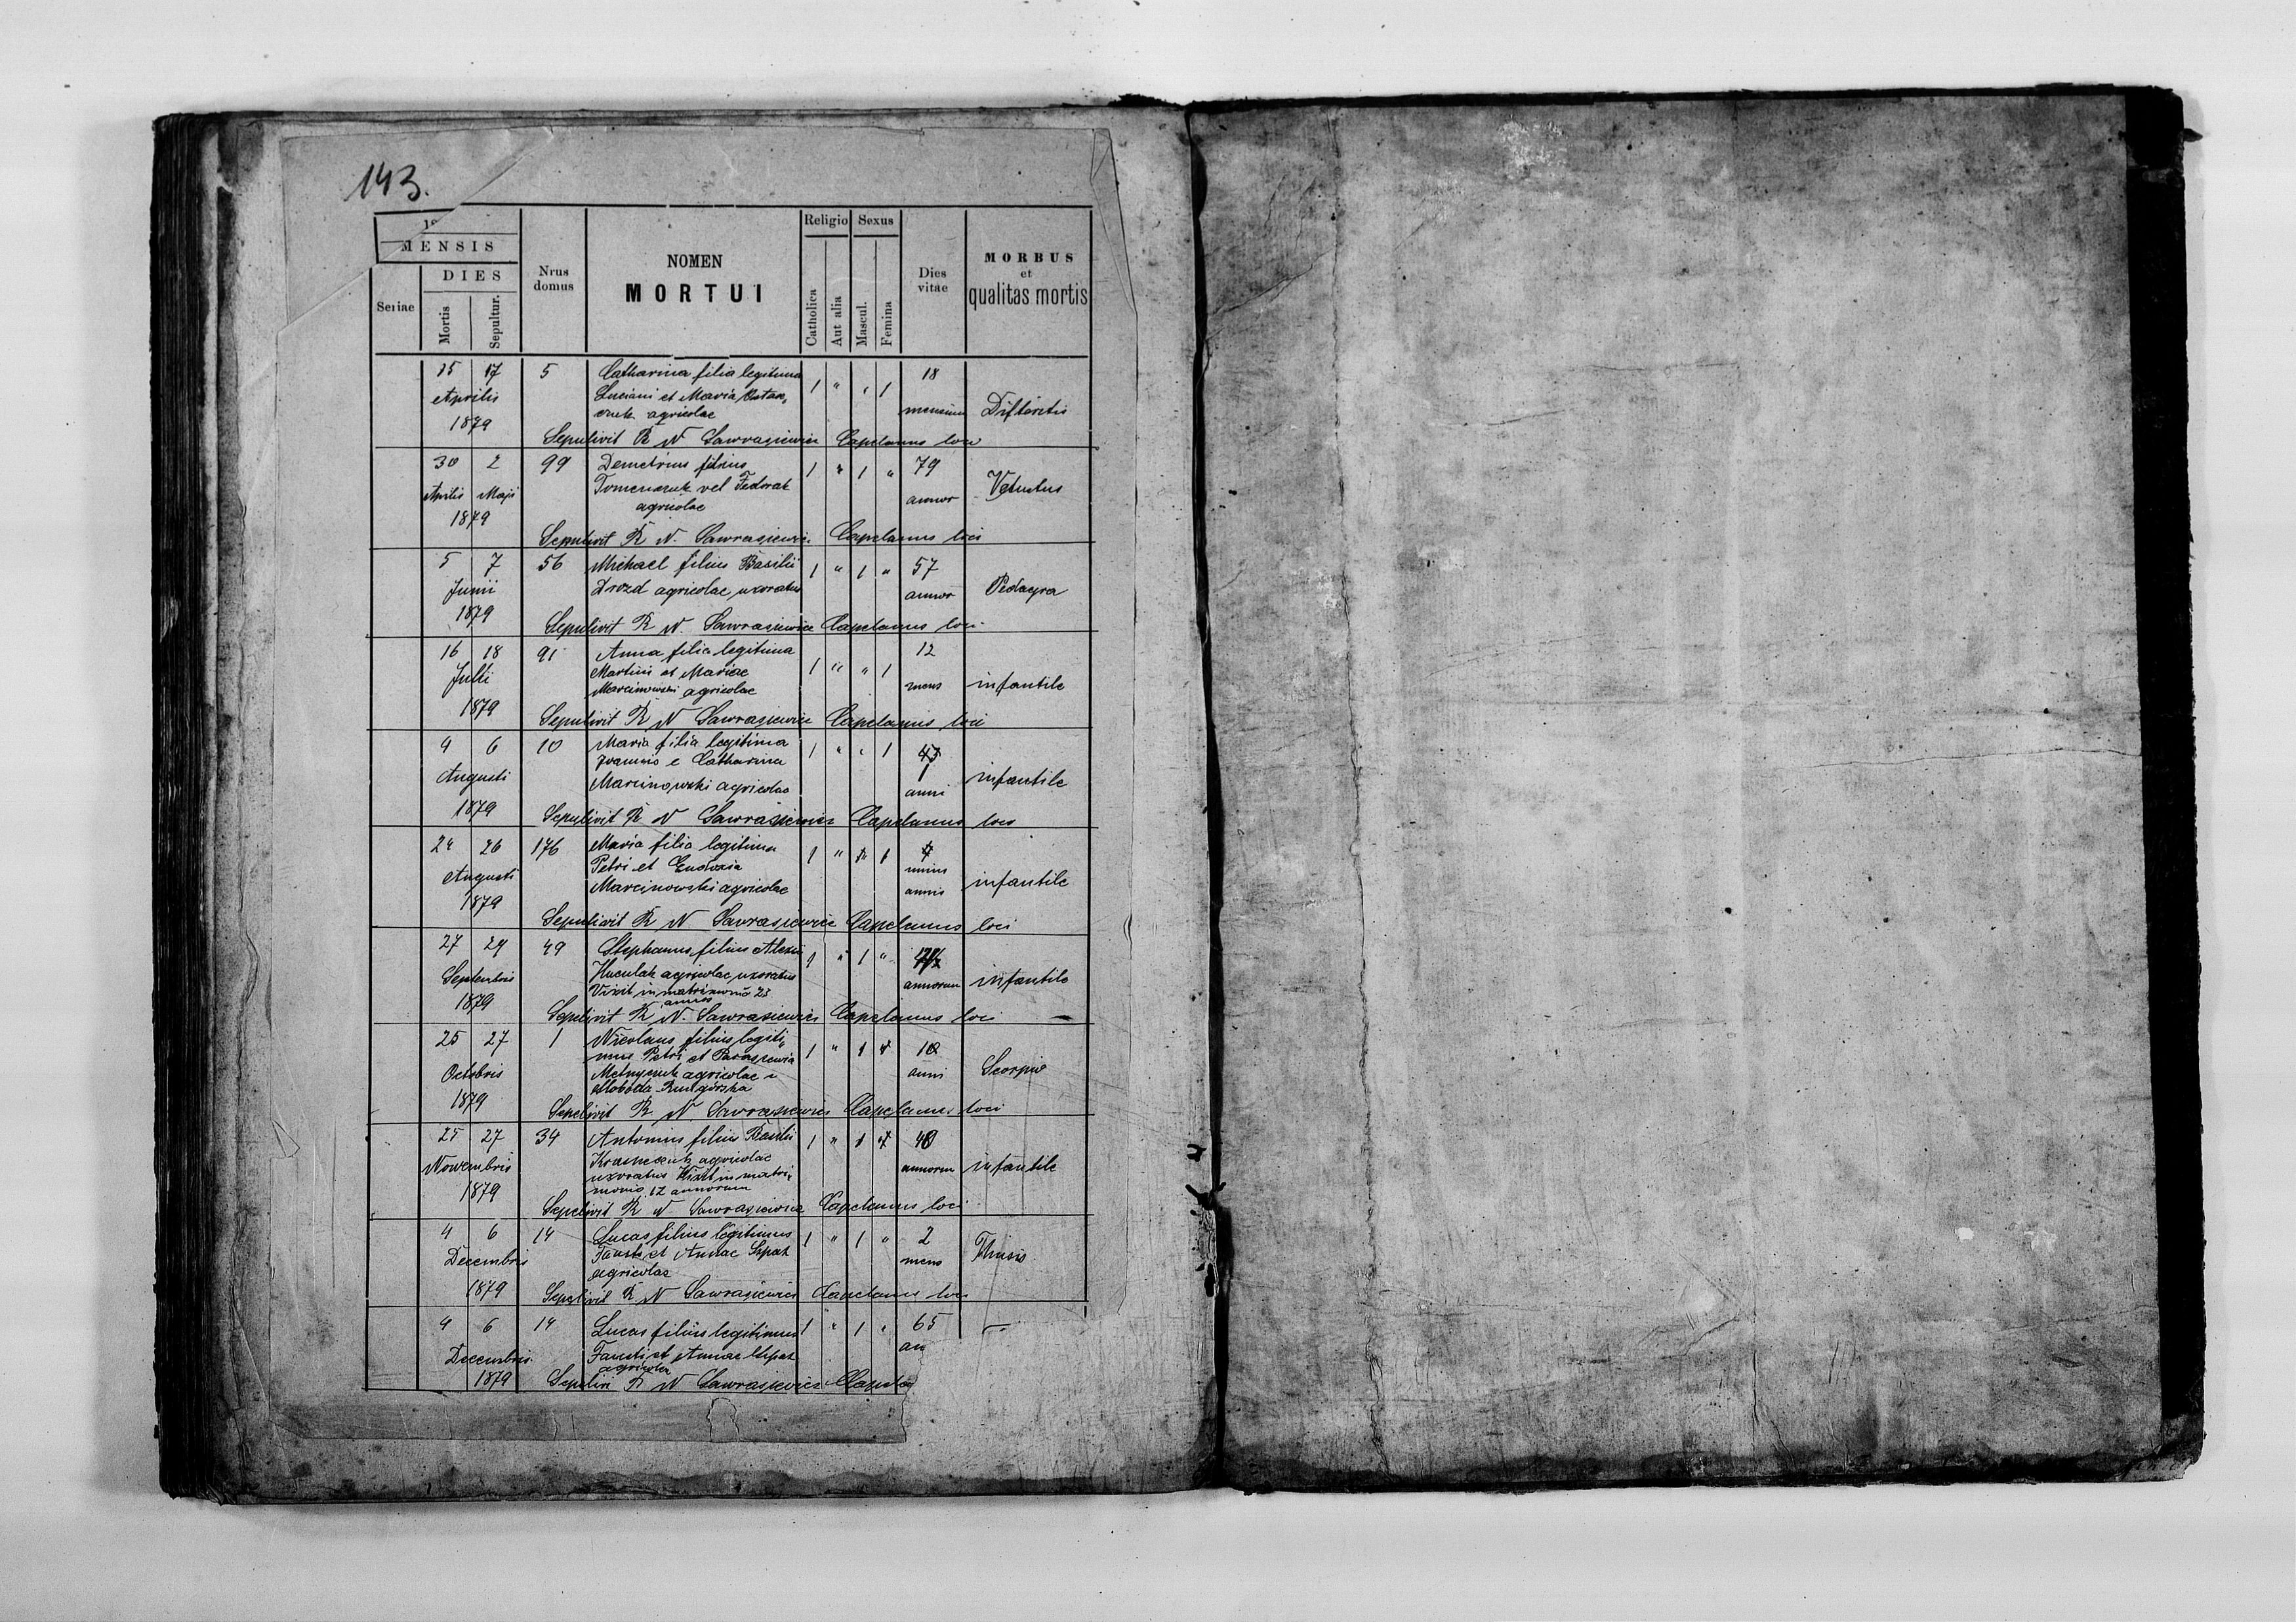 143.
MENSIS
DIES
Seriae
Mortis
Sepultur.
Nrus domus
NOMEN
MORTUI
Religio
Catholica
Aut alia
Sexus
Mascul.
Femina
Dies vitae
MORBUS
et
qualitas mortis
15 17 5 Catharina filia legitima 1 " " 1 18
Aprilis Luciani et Maria
agricolae mensium
1879
Sepelivit R N Sawrasiewicz Capelanus loci
30 2 99 Demetrius filius 1 " 1 " 79
Aprilis Maji vel Fedorak annor Vetustus
agricolae
1879
Sepelivit R N. Sawrasiewicz Capelanus loci
5 7 56 Michael filius Basilii 1 " 1 " 57
Junii Drozd agricolae uxoratus annor Pedagra
1879
Sepelivit R N. Sawrasiewicz Capelanus loci
16 18 91 Anna filia legitima 1 " " 1 12
Julii Martini et Mariae
Marcinowski agricolae mens infantile
1879
Sepelivit R N Sawrasiewicz Capelanus loci
4 6 10 Maria filia legitima 1 " " 1
Joannis e Catharina 1
Augusti Marcinowski agricolae anni infantile
1879
Sepelivit R N Sawrasiewicz Capelanus loci
24 26 176 Maria filia legitima 1 " 1
Petri et Eudoxia unius
Augusti Marcinowski agricolae annis infantile
1879
Sepelivit R N Sawrasiewicz Capelanus loci
27 29 49 Stephanus filius Alexii 1 " 1 "
Septembris Huculak agricolae uxoratus annorum infantile
Vixit in matrimonio 25
annos
1879
Sepelivit R N. Sawrasiewicz Capelanus loci
25 27 1 Nicolaus filius legiti„ 1 " 1
mus Petri et Parascewia
Octobris Melnyczuk agricolae anni
Sloboda Rungórska
1879
Sepelivit R N Sawrasiewicz Capelanus loci
25 27 34 Antonius filius Basilii 1 " 1
Nowembris agricolae annorum infantile
uxoratus in matri„
monio 12 annorum
1879
Sepelivit R N Sawrasiewicz Capelanus loci
4 6 14 Lucas filius legitimus 1 " 1 " 2
Decembris Fausti et Annae mens
agricolae
1879
Sepelivit R N Sawrasiewicz Capelanus loci
4 6 14 Lucas filius legitimus 1 " 1 " 65 —
Decembris Fausti et Annae an
agricolae
1879 R N Sawrasiewicz